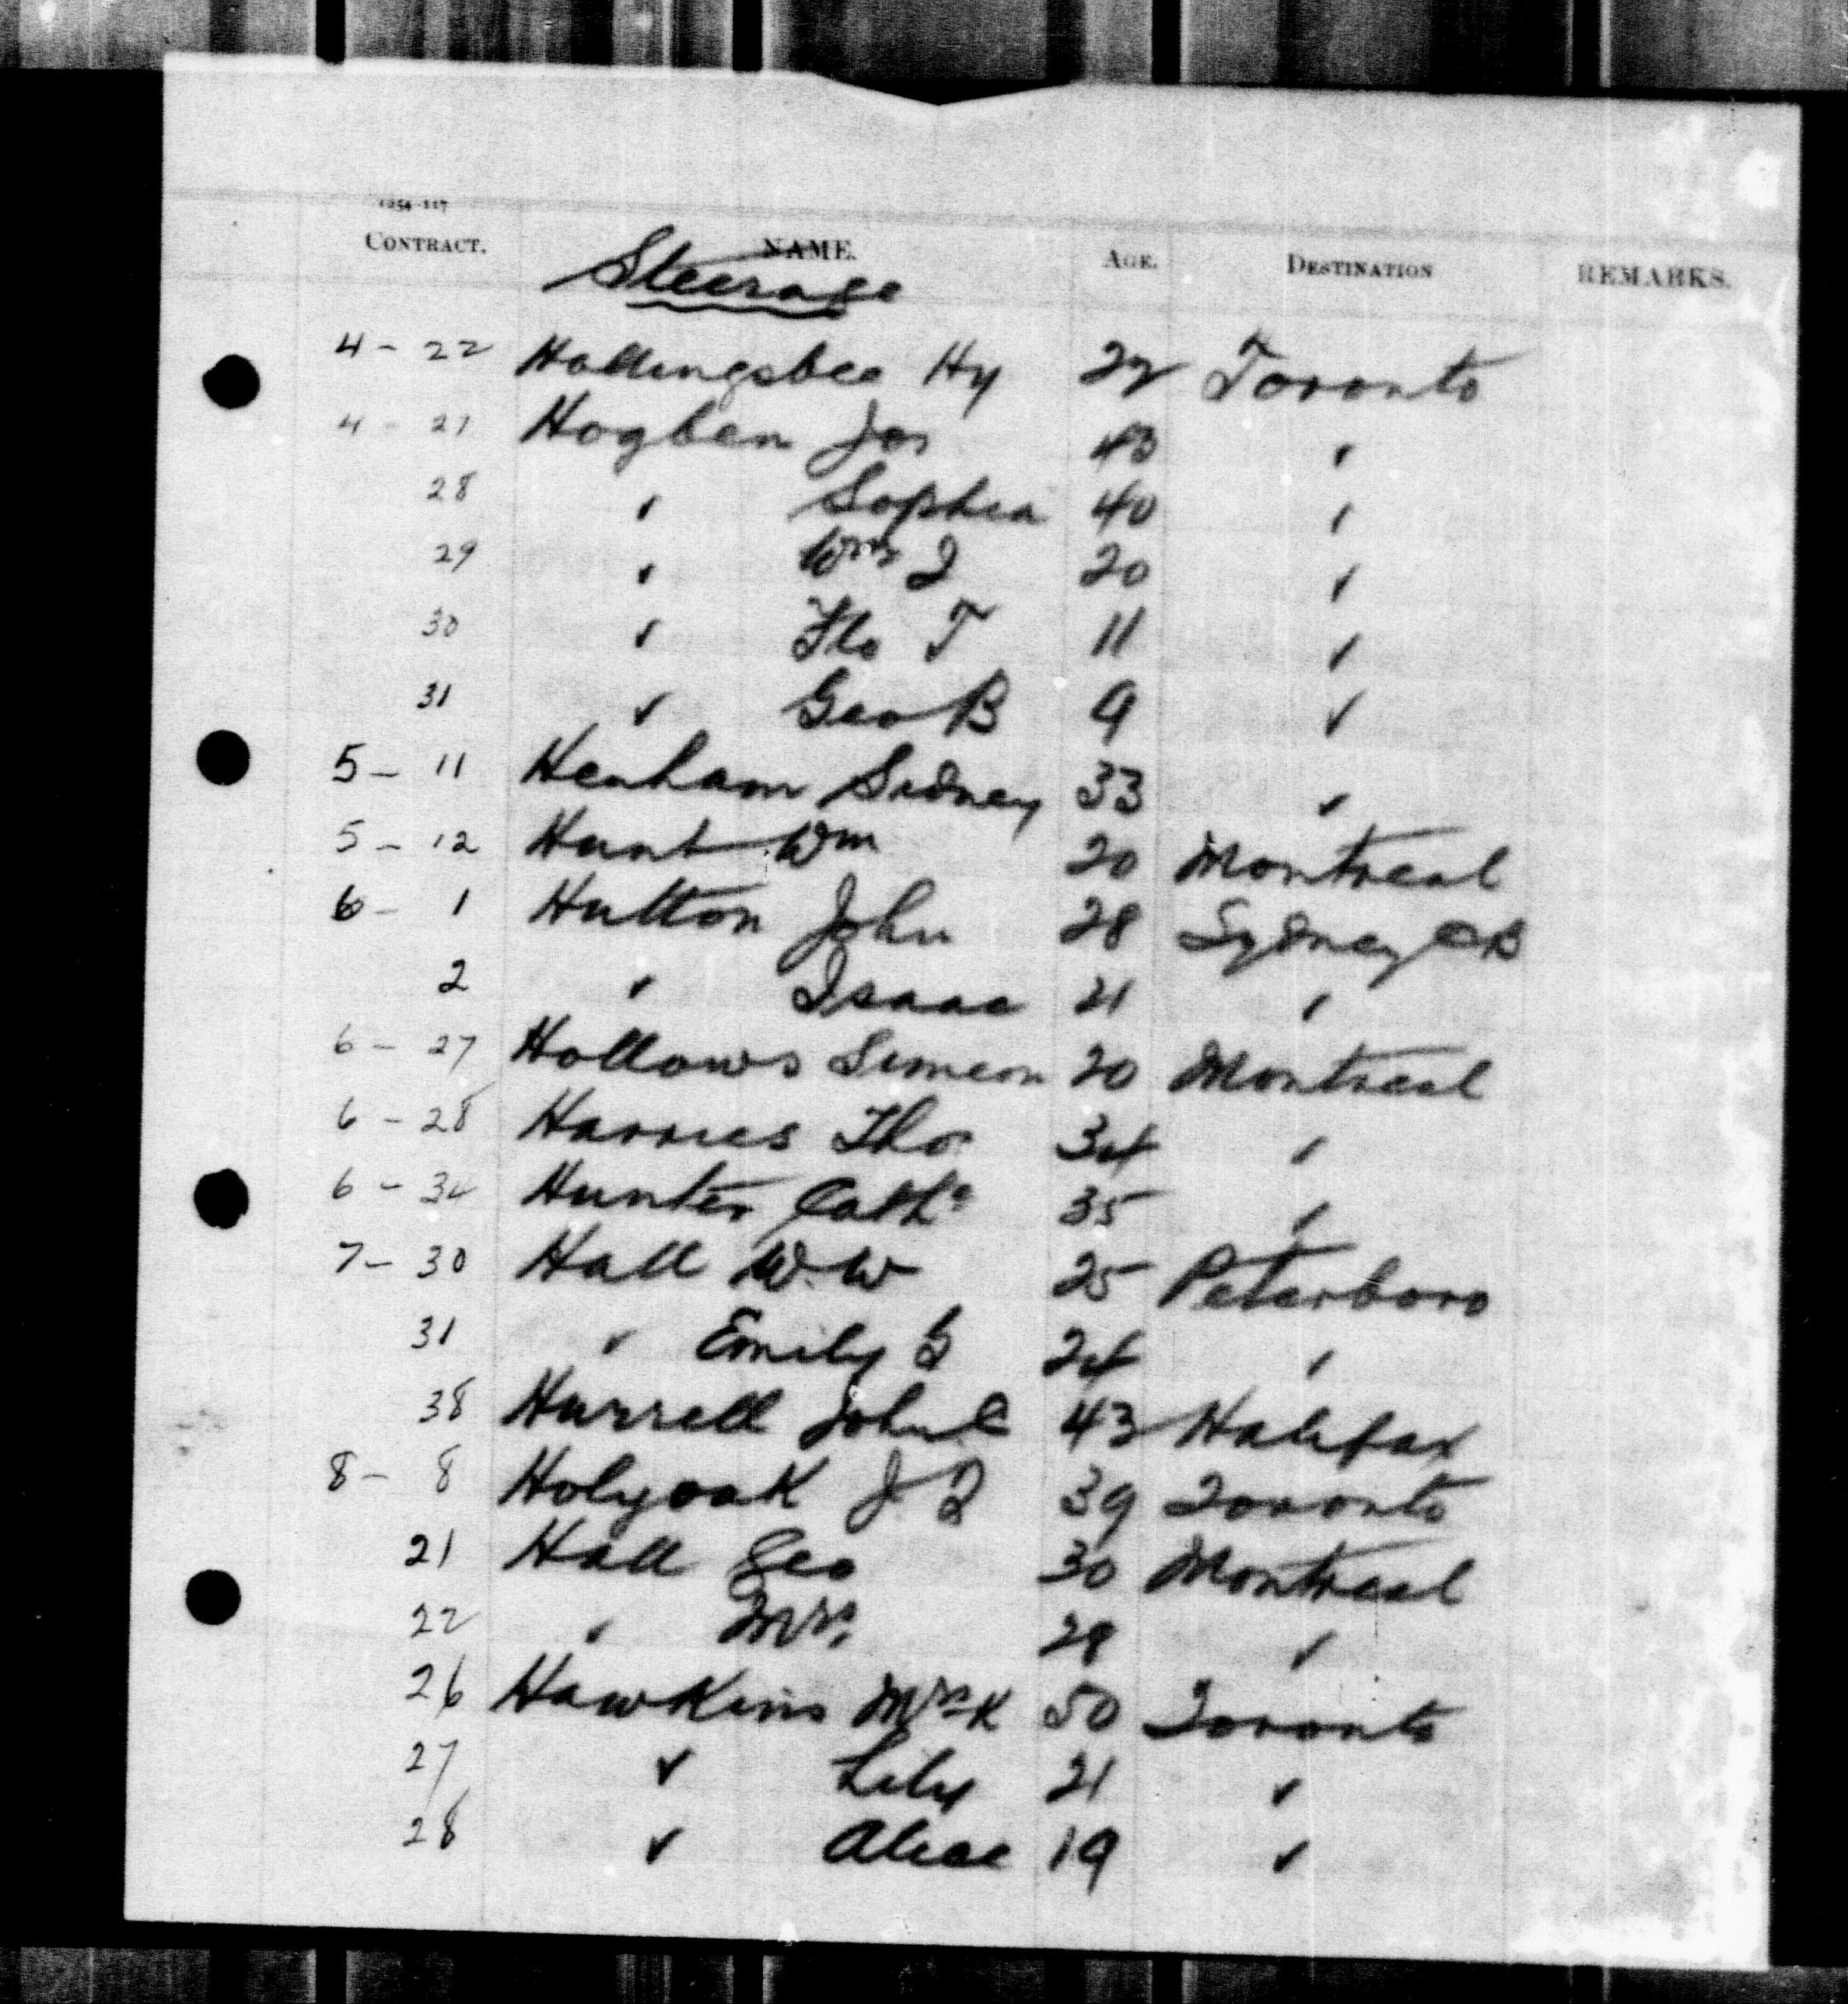 1254-117
CONTRACT. NAME. AGE. DESTINATION REMARKS.
Steerage
4 - 22 Hollingsbee Hy 22 Toronto
4 - 27 Hogben Jos 43 "
28 " Sophia 40 "
29 " Wm J 20 "
30 " Flo T 11 "
31 " Geo B 9 "
5 - 11 Henham Sidney 33 "
5 - 12 Hunt Wm 20 Montreal
6 - 1 Hutton John 28 Sydney CB
2 " Isaac 21 "
6 - 27 Hollows Simeon 20 Montreal
6 - 28 Harries Tho 34 "
6 - 34 Hunter Cathe 35 "
7 - 30 Hall W. W 25 Peterboro
31 " Emily G 24 "
38 Hurrell John C 43 Halifax
8 - 8 Holyoak J. J 39 Toronto
21 Hall Geo 30 Montreal
22 " Mrs. 28 "
26 Hawkins Mrs K 50 Toronto
27 " Lily 21 "
28 " Alice 19 "